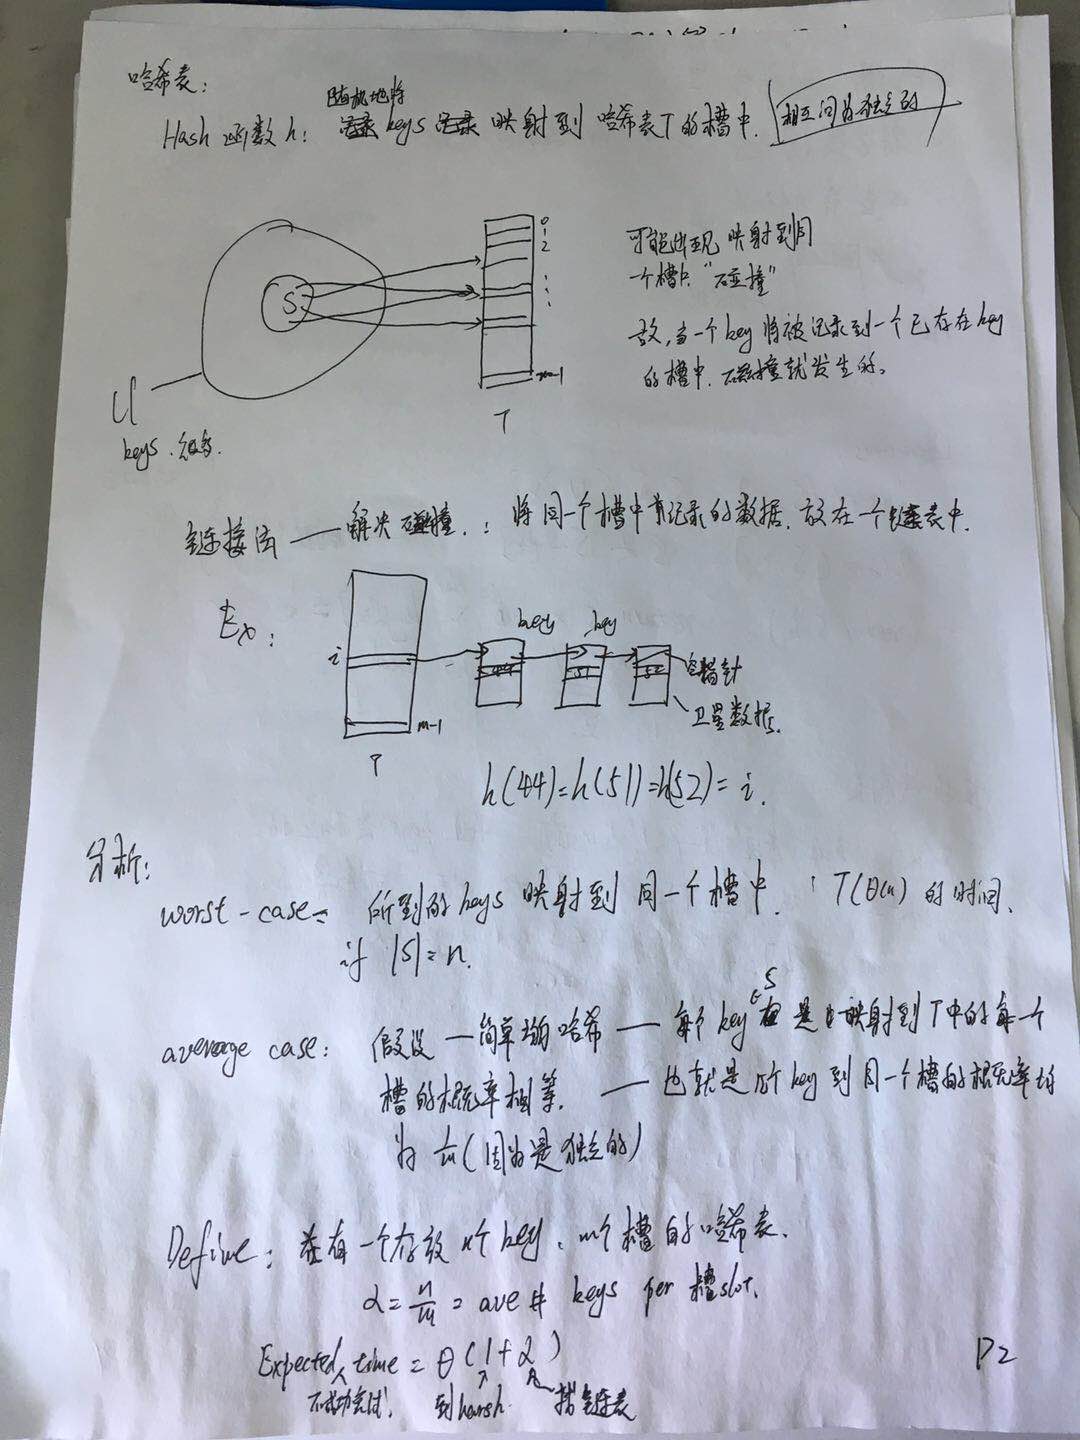 哈希表:
随机地将
Hash 函数 h: keys 映射到 哈希表T的槽中. 相互间为独立的
0
1
2
S
m-1
U
T
keys.
可能出现 映射到同
一个槽中 "碰撞"
故,当一个key将被记录到一个已存在key
的槽中.碰撞就发生的。
链接法 — 解决碰撞.: 将同一个槽中有记录的数据.放在一个链表中.
Ex:
key key
i 44 51 52 空指针
卫星数据.
m-1
T
h(44)=h(51)=h(52)=i.
分析:
worst-case: 所到的keys 映射到 同一个槽中. T(θ(n)) 的时间.
if |S|=n.
average case: 假设 — 简单 哈希 — 每个 key ∈S 是 映射到T中的每一个
槽的概率相等. — 也就是 个key到同一个槽的概率均
为 1/m (因为是独立的)
Define: 在有一个存放 n个key、m个槽的哈希表.
α = n/m = ave # keys per 槽slot.
Expected time = θ(1+α)
不成功 到harsh. 找链表
P2